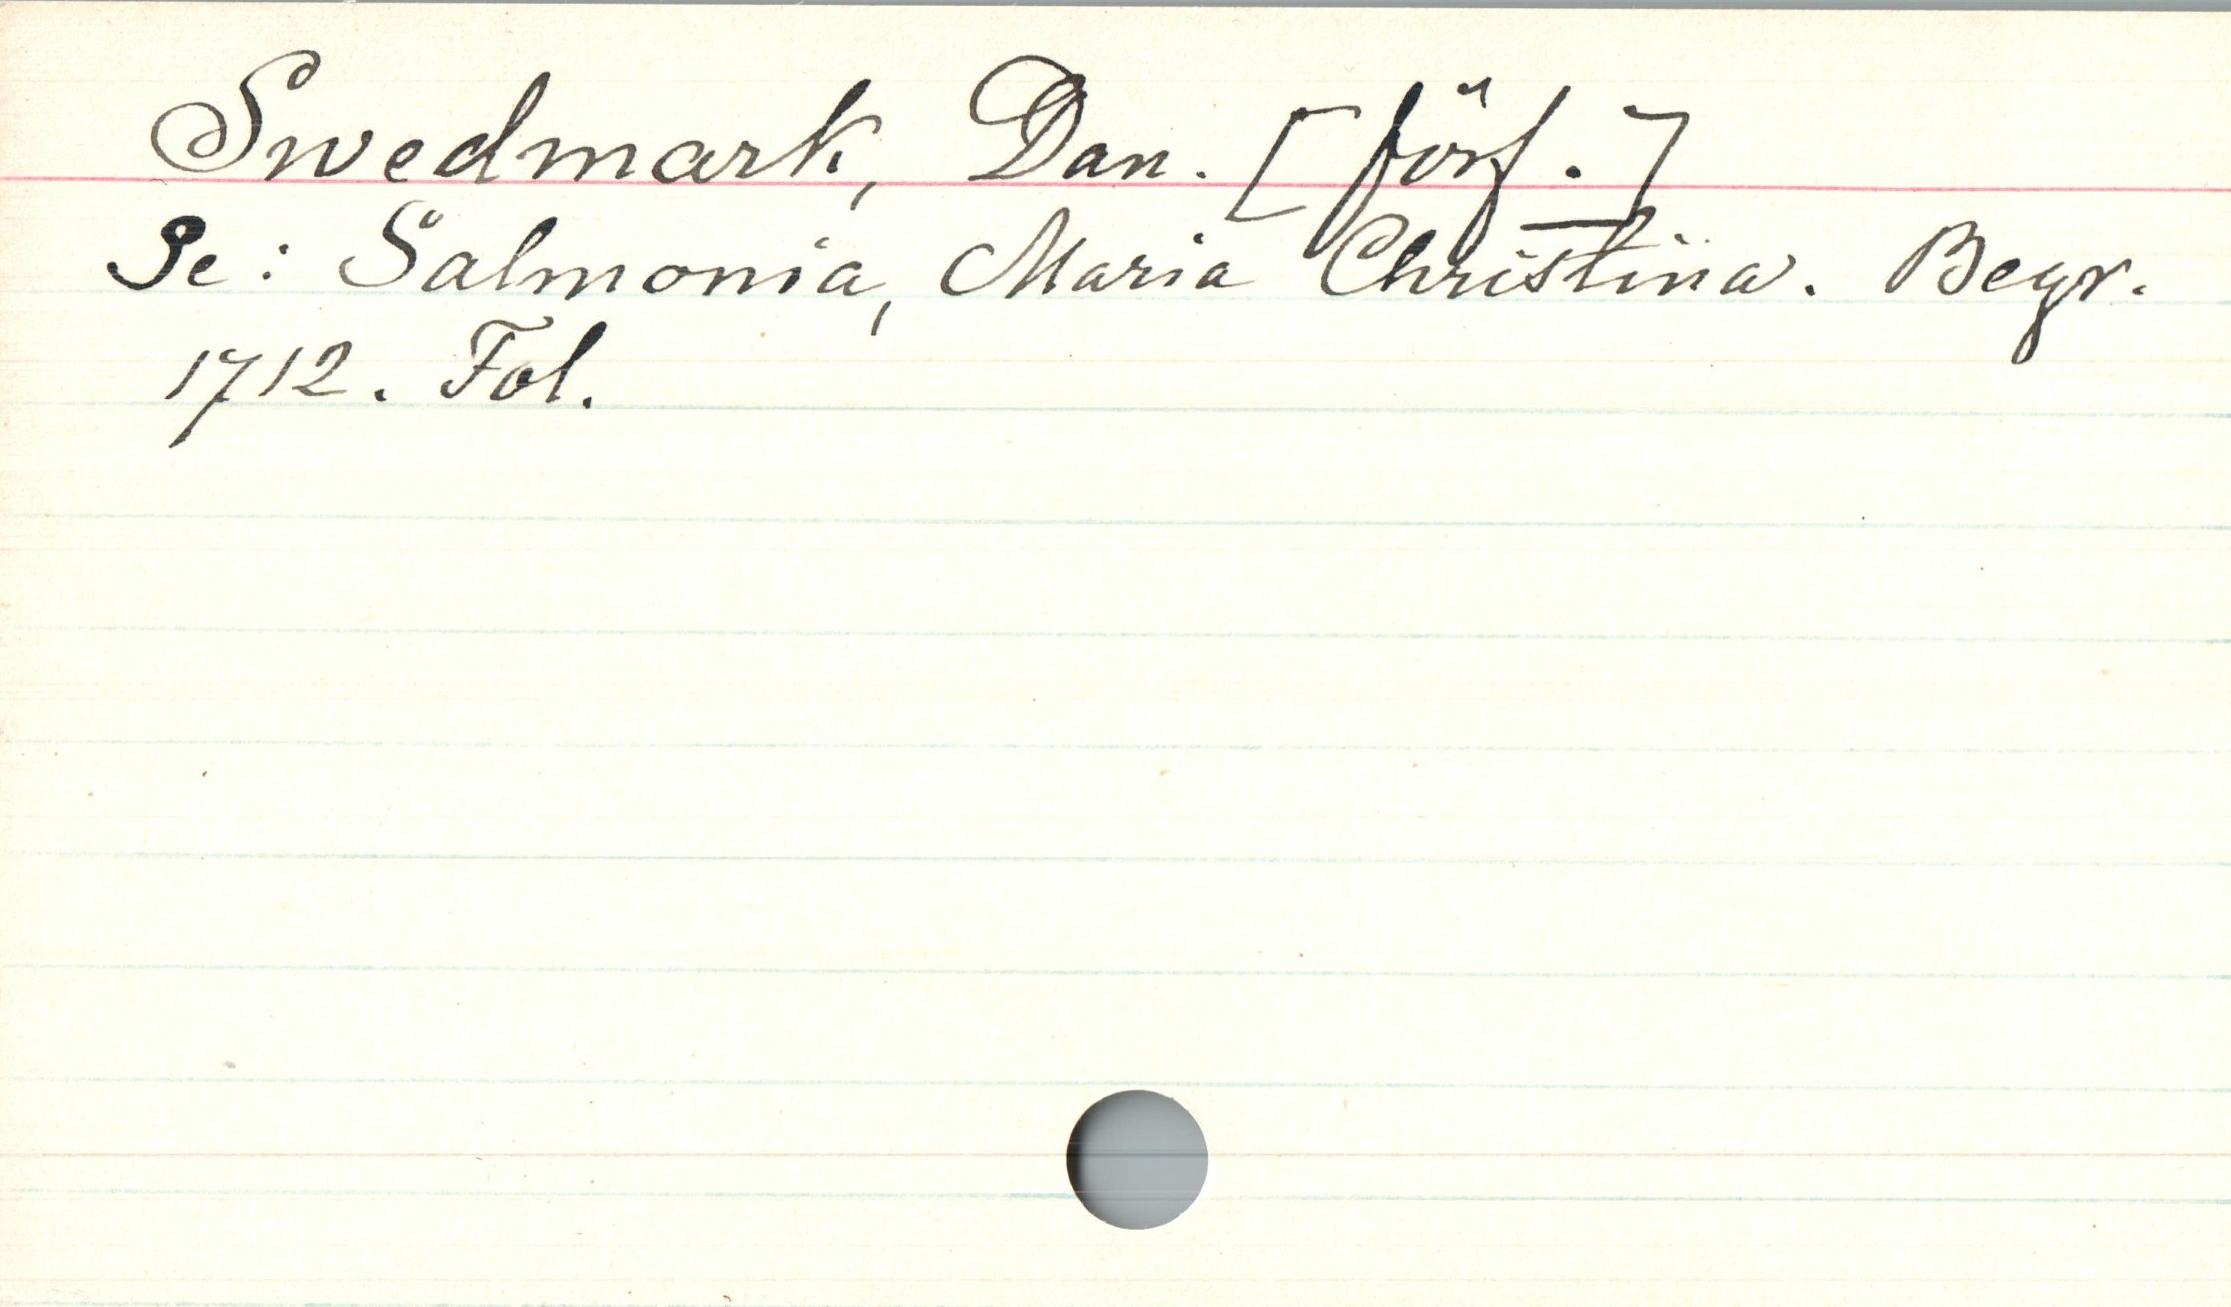 Swedmark, Dan. [förf.]
Se: Salmonia, Maria Christina. Begr.
1712. Fol.